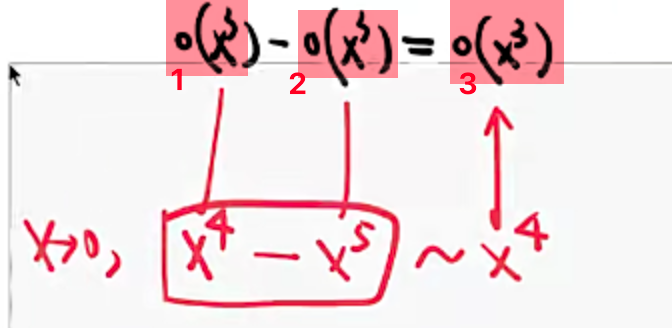 o(x³) - o(x³) = o(x³)
1 2 3
x→0, x⁴ - x⁵ ~ x⁴